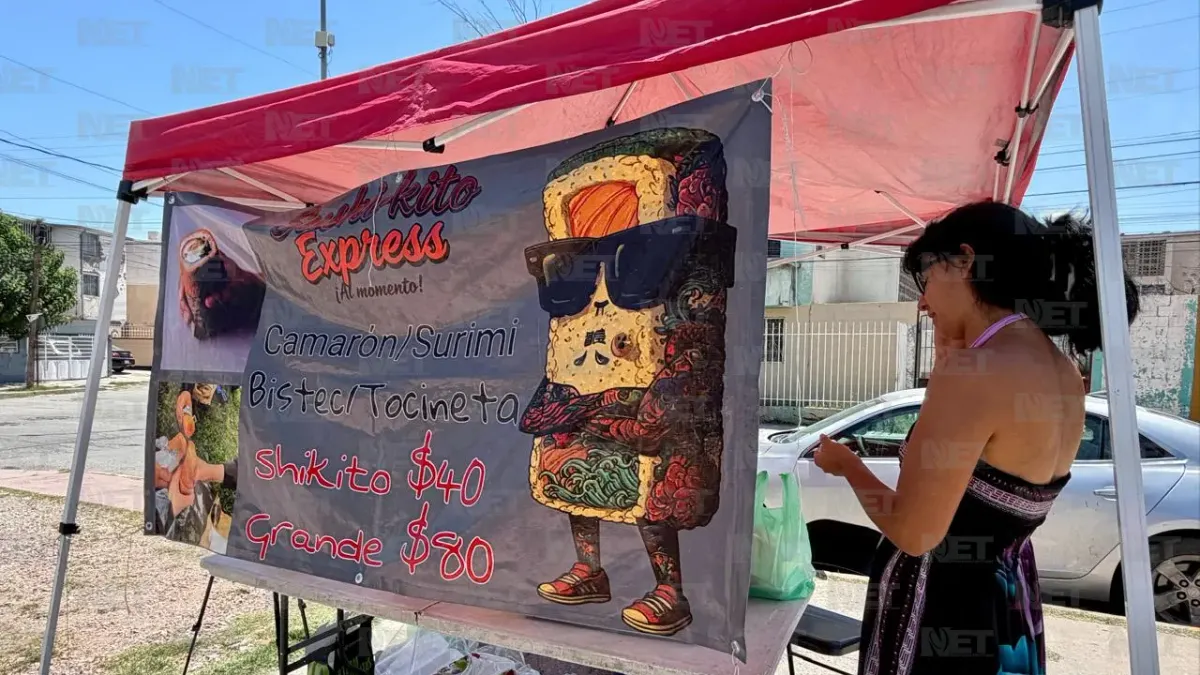 Express
¡Al momento!
Camarón/Surimi
Bistec/Tocineta
Shikito $40
Grande $80
NET